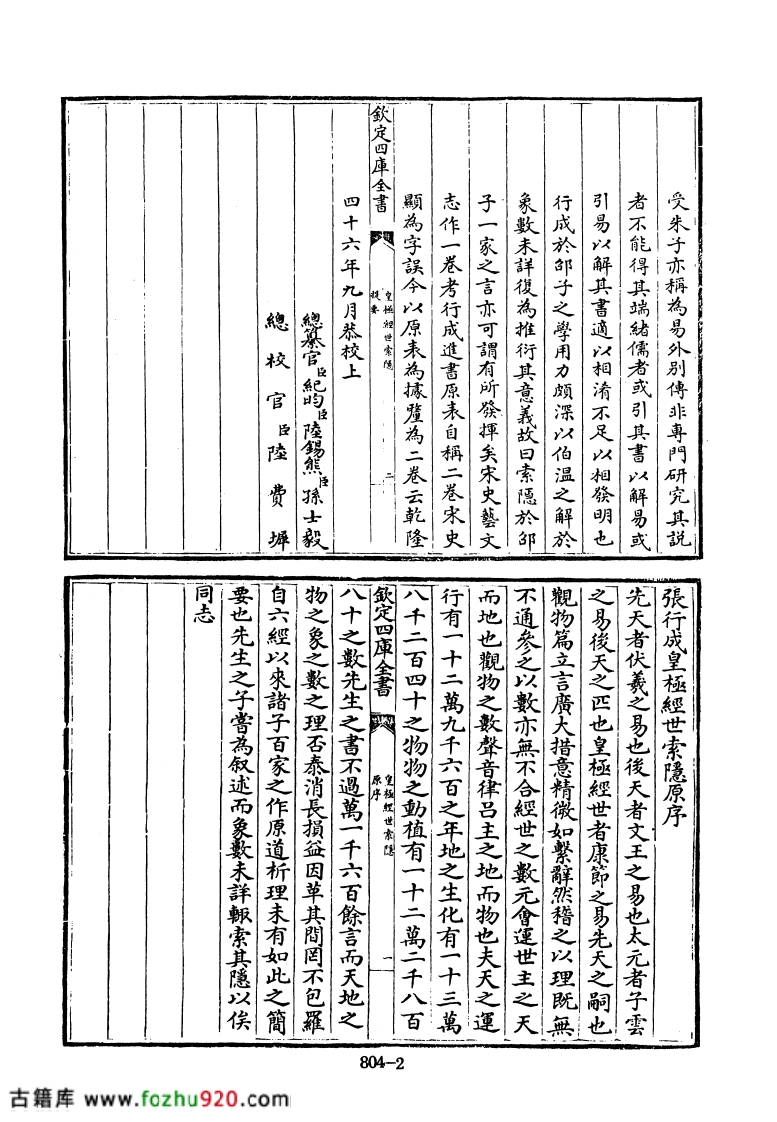 受朱子亦稱為易外別傳非專門研究其說
者不能得其端緒儒者或引其書以解易或
引易以解其書適以相淆不足以相發明也
行成於邵子之學用力頗深以伯温之解於
象數未詳復為推衍其意義故曰索隱於邵
子一家之言亦可謂有所發揮矣宋史藝文
志作一卷考行成進書原表自稱二卷宋史
顯為字誤今以原表為據釐為二卷云乾隆
欽定四庫全書
皇極經世索隱
提要
二
四十六年九月恭校上
總纂官臣紀昀臣陸錫熊臣孫士毅
總校官臣陸費墀
張行成皇極經世索隱原序
先天者伏羲之易也後天者文王之易也太元者子雲
之易後天之匹也皇極經世者康節之易先天之嗣也
觀物篇立言廣大措意精微如繫辭然稽之以理既無
不通參之以數亦無不合經世之數元會運世主之天
而地也觀物之數聲音律吕主之地而物也夫天之運
行有一十二萬九千六百之年地之生化有一十三萬
八千二百四十之物物之動植有一十二萬二千八百
欽定四庫全書
皇極經世索隱
原序
一
八十之數先生之書不過萬一千六百餘言而天地之
物之象之數之理否泰消長損益因革其間罔不包羅
自六經以來諸子百家之作原道析理未有如此之簡
要也先生之子嘗為叙述而象數未詳輙索其隱以俟
同志
804-2
古籍库 www.fozhu920.com